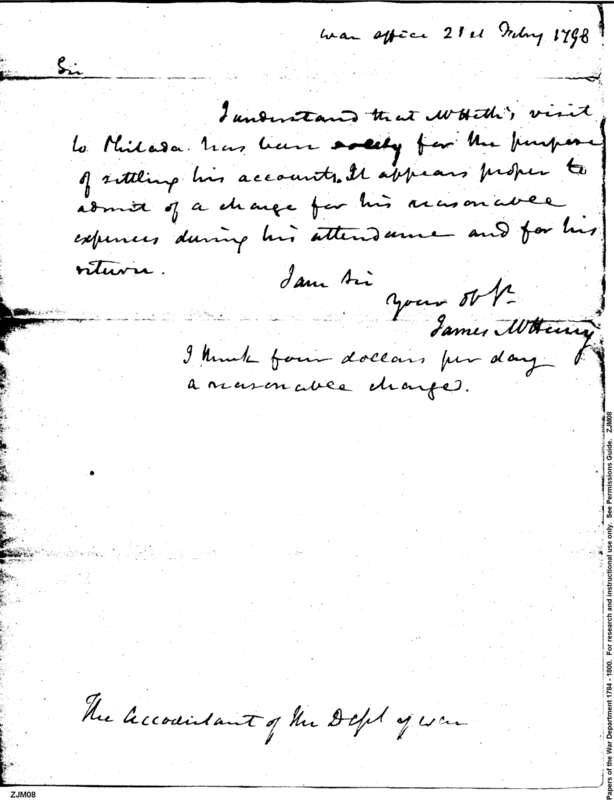 War office 21st Feby 1798
Sir
I understand that Mr Heth's visit
to Philada. has been solely for the purpose
of settling his accounts. It appears proper to
admit of a charge for his reasonable
expences during his attendance and for his
return.
I am Sir
your ob St.
James McHenry
I think four dollars per day
a reasonable charge.
The Accountant of the Dept of war
ZJM08
Papers of the War Department 1784 - 1800. For research and instructional use only. See Permissions Guide. ZJM08